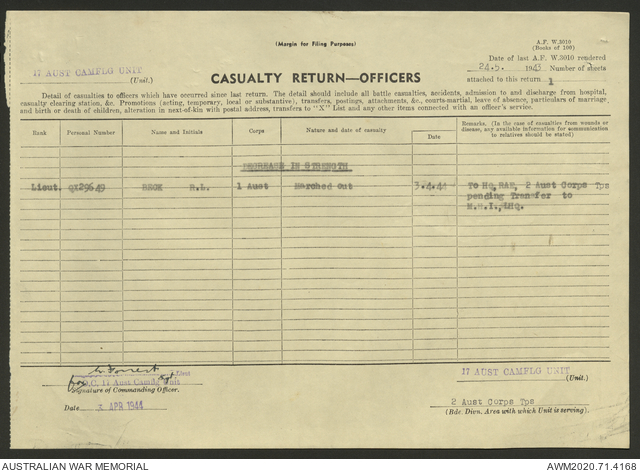 (Margin for Filing Purposes)
A.F. W.3010
(Books of 100)
Date of last A.F. W.3010 rendered
17 AUST CAMFLG UNIT
(Unit.)
CASUALTY RETURN—OFFICERS
24.5. 1943 Number of sheets
attached to this return 1
Detail of casualties to officers which have occurred since last return. The detail should include all battle casualties, accidents, admission to and discharge from hospital,
casualty clearing station, &c. Promotions (acting, temporary, local or substantive), transfers, postings, attachments, &c., courts-martial, leave of absence, particulars of marriage,
and birth or death of children, alteration in next-of-kin with postal address, transfers to "X" List and any other items connected with an officer's service.
Rank Personal Number Name and Initials Corps Nature and date of casualty Date Remarks. (In the case of casualties from wounds or
disease, any available information for communication
to relatives should be stated)
DECREASE IN STRENGTH
Lieut. QX29649 BECK R.L. 1 Aust Marched out 3.4.44 To HQ, RAE, 2 Aust Corps Tps
pending Transfer to
LHQ.
Lieut
for O.C. 17 Aust Camflg Unit
Signature of Commanding Officer.
17 AUST CAMFLG UNIT
(Unit.)
Date 3 APR 1944
2 Aust Corps Tps
(Bde. Divn. Area with which Unit is serving).
AUSTRALIAN WAR MEMORIAL
AWM2020.71.4168